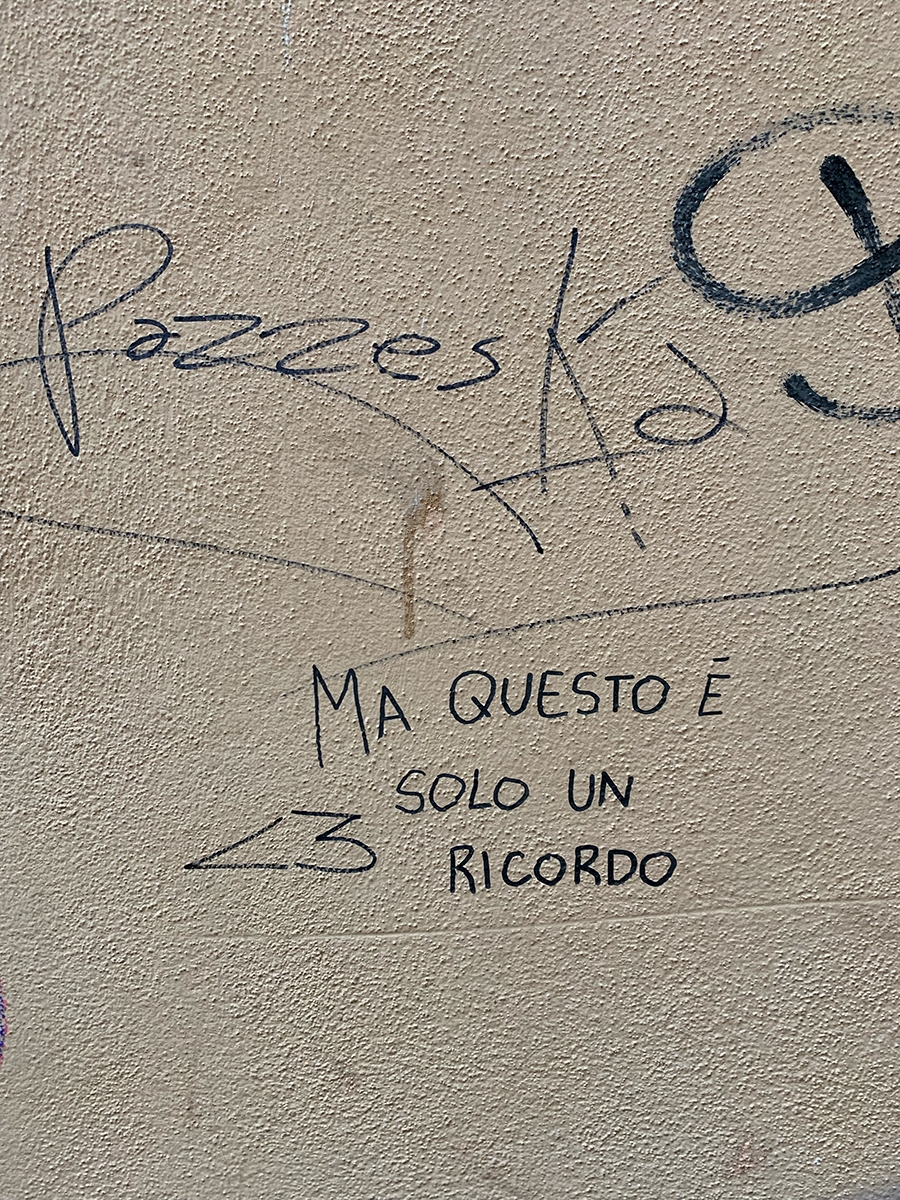 PazzesKa
MA QUESTO É
SOLO UN
<3
RICORDO